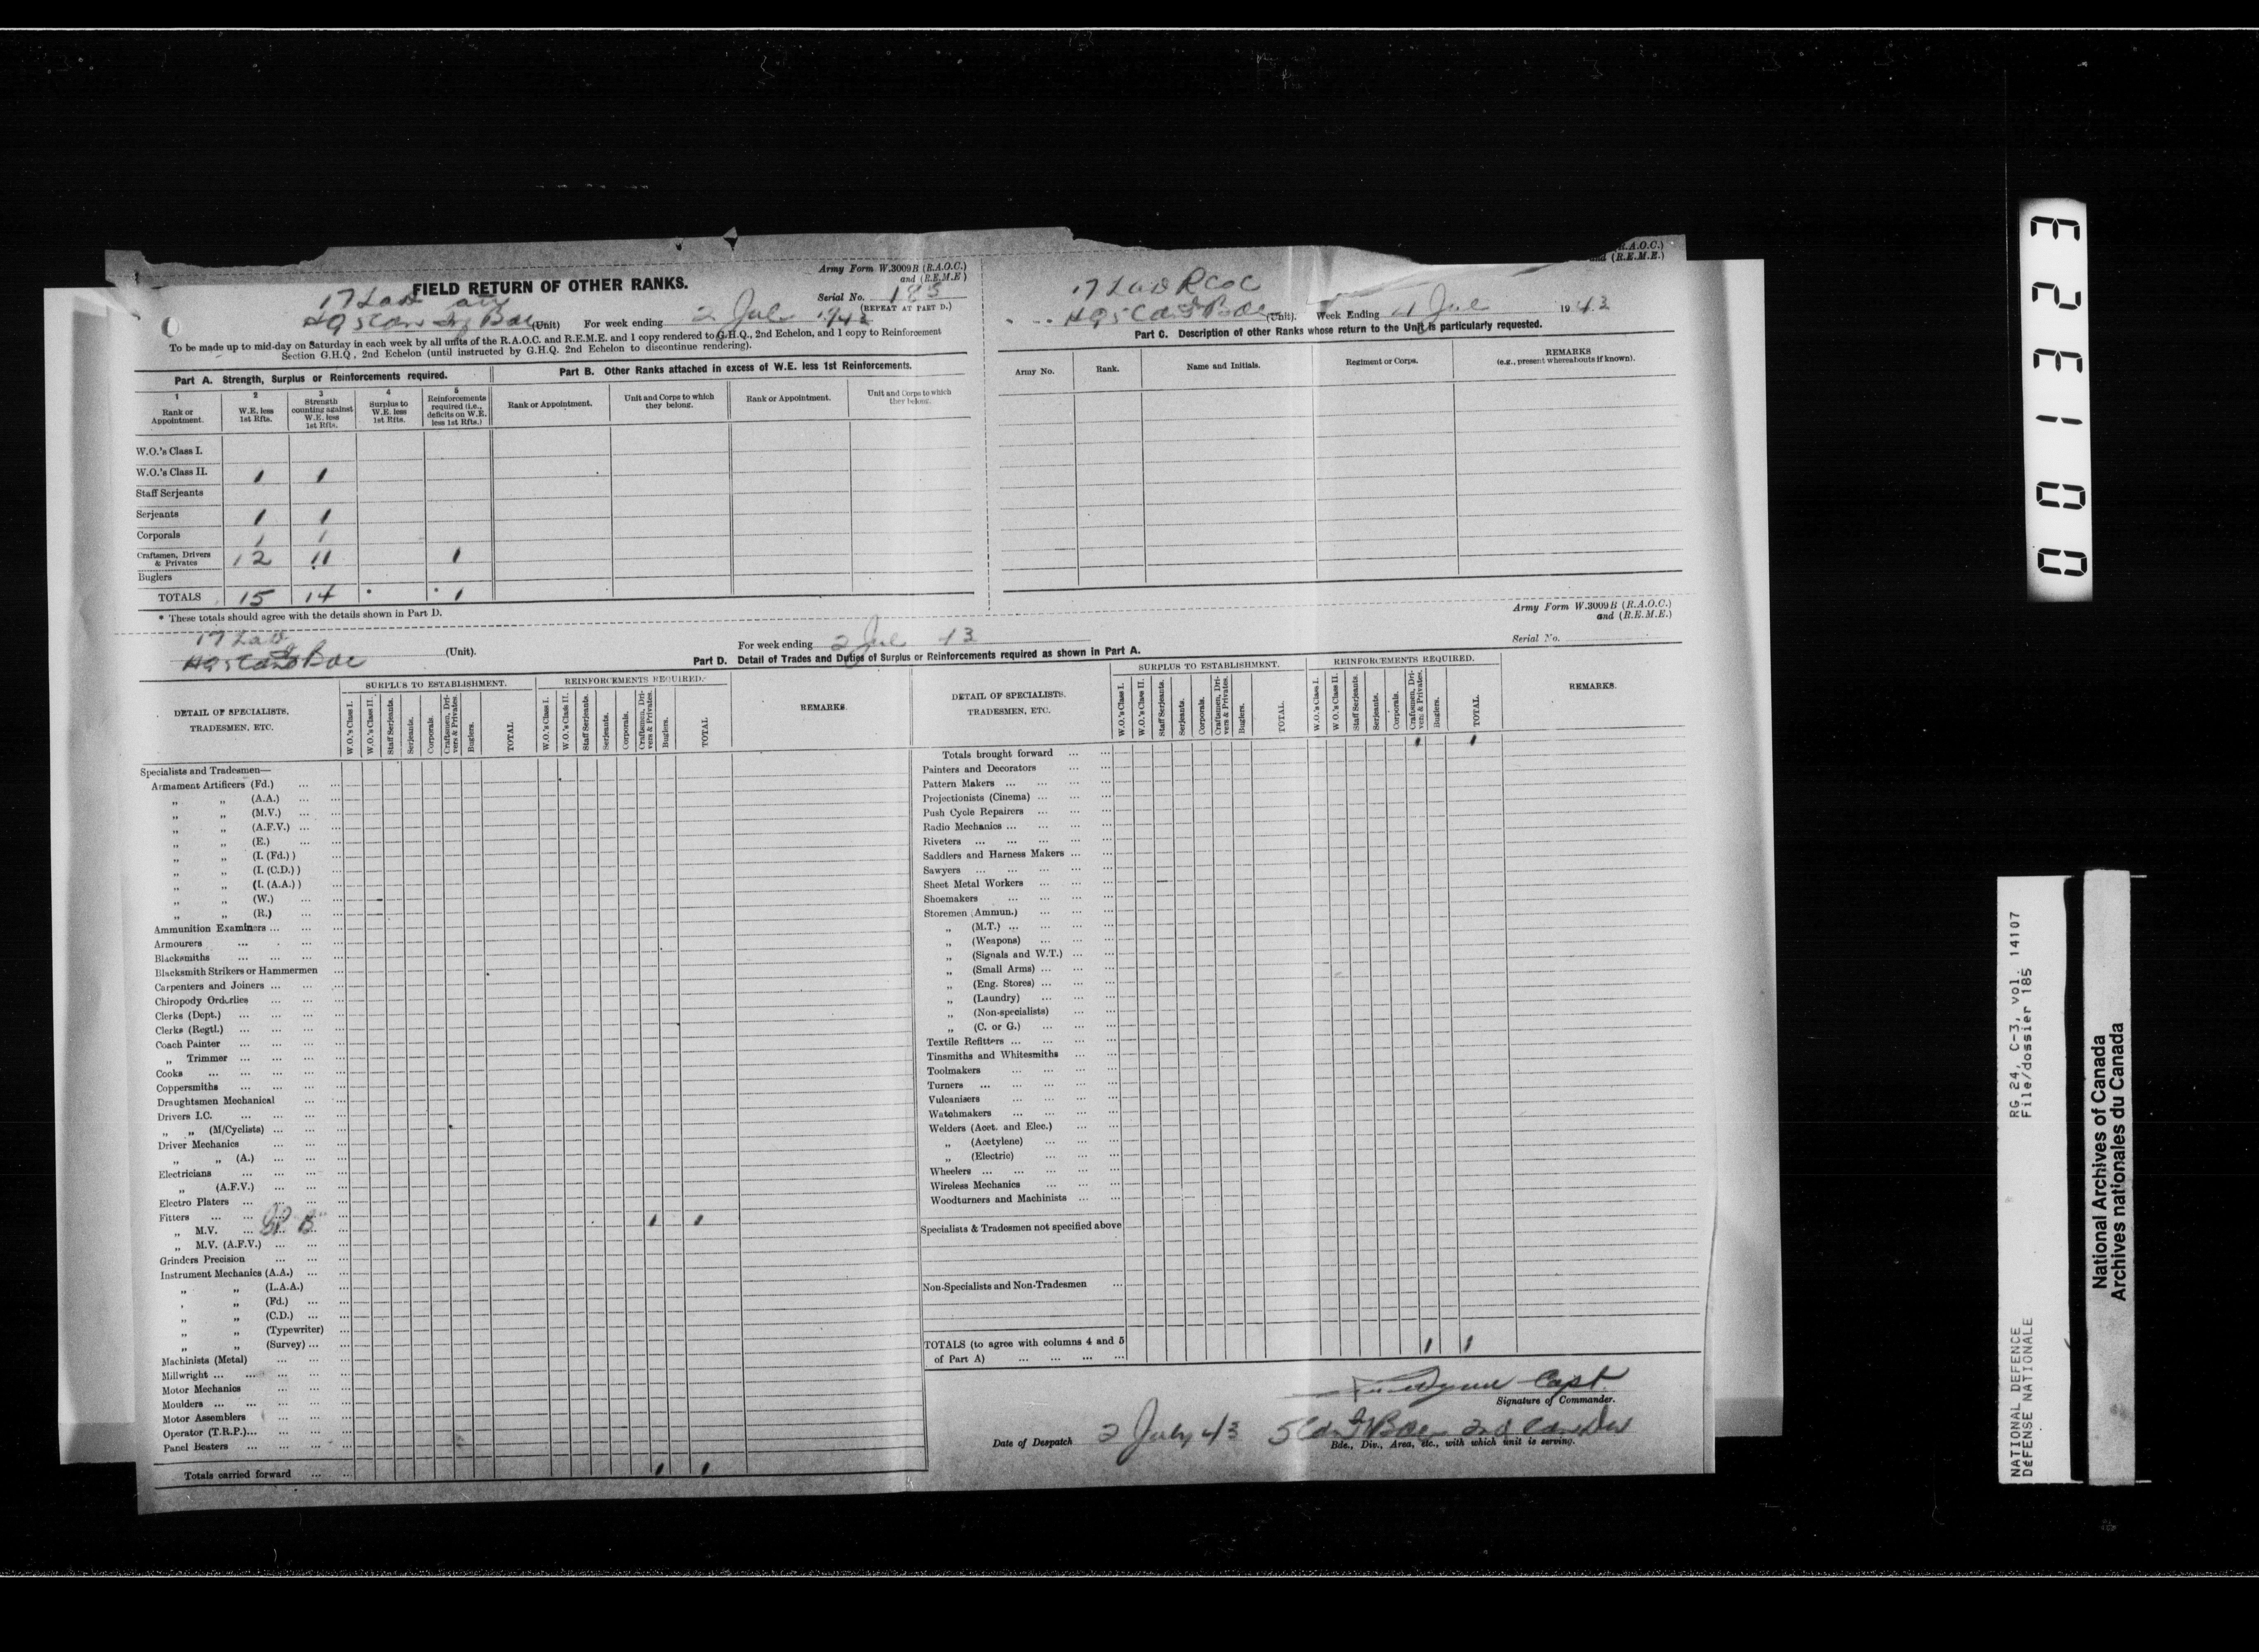 Army Form W.3009B (R.A.O.C.)
and (R.E.M.E.)
FIELD RETURN OF OTHER RANKS.
Serial No. 183
(REPEAT AT PART D.)
17 Lad
(Unit) For week ending 2 Jul 1943
To be made up to mid-day on Saturday in each week by all units of the R.A.O.C. and R.E.M.E. and 1 copy rendered to G.H.Q., 2nd Echelon, and 1 copy to Reinforcement
Section G.H.Q., 2nd Echelon (until instructed by G.H.Q. 2nd Echelon to discontinue rendering).
Part A. Strength, Surplus or Reinforcements required.
Part B. Other Ranks attached in excess of W.E. less 1st Reinforcements.
1 2 3 4 5
Rank or Appointment. W.E. less 1st Rfts. Strength counting against W.E. less 1st Rfts. Surplus to W.E. less 1st Rfts. Reinforcements required (i.e., deficits on W.E. less 1st Rfts.)
Rank or Appointment. Unit and Corps to which they belong. Rank or Appointment. Unit and Corps to which they belong.
W.O.'s Class I.
W.O.'s Class II. 1 1
Staff Serjeants
Serjeants 1 1
Corporals 1 1
Craftsmen, Drivers & Privates 12 11 1
Buglers
TOTALS 15 14 * * 1
* These totals should agree with the details shown in Part D.
R.A.O.C.)
and (R.E.M.E.)
17 Lad RCOC
(Unit). Week Ending Jul 1943
Part C. Description of other Ranks whose return to the Unit is particularly requested.
Army No. Rank. Name and Initials. Regiment or Corps. REMARKS (e.g., present whereabouts if known).
Army Form W.3009B (R.A.O.C.)
and (R.E.M.E.)
Serial No.
17 Lad
(Unit). For week ending 2 Jul 43
Part D. Detail of Trades and Duties of Surplus or Reinforcements required as shown in Part A.
DETAIL OF SPECIALISTS, TRADESMEN, ETC.
SURPLUS TO ESTABLISHMENT. REINFORCEMENTS REQUIRED. REMARKS.
W.O.'s Class I. W.O.'s Class II. Staff Serjeants. Serjeants. Corporals. Craftsmen, Drivers & Privates. Buglers. TOTAL
W.O.'s Class I. W.O.'s Class II. Staff Serjeants. Serjeants. Corporals. Craftsmen, Drivers & Privates. Buglers. TOTAL
Specialists and Tradesmen—
Armament Artificers (Fd.)
„ „ (A.A.)
„ „ (M.V.)
„ „ (A.F.V.)
„ „ (E.)
„ „ (I. (Fd.))
„ „ (I. (C.D.))
„ „ (I. (A.A.))
„ „ (W.)
„ „ (R.)
Ammunition Examiners
Armourers
Blacksmiths
Blacksmith Strikers or Hammermen
Carpenters and Joiners
Chiropody Orderlies
Clerks (Dept.)
Clerks (Regtl.)
Coach Painter
„ Trimmer
Cooks
Coppersmiths
Draughtsmen Mechanical
Drivers I.C.
„ „ (M/Cyclists)
Driver Mechanics
„ „ (A.)
Electricians
„ (A.F.V.)
Electro Platers
Fitters
„ M.V. 1 1
„ M.V. (A.F.V.)
Grinders Precision
Instrument Mechanics (A.A.)
„ „ (L.A.A.)
„ „ (Fd.)
„ „ (C.D.)
„ „ (Typewriter)
„ „ (Survey)
Machinists (Metal)
Millwright
Motor Mechanics
Moulders
Motor Assemblers
Operator (T.R.P.)
Panel Beaters
Totals carried forward 1 1
DETAIL OF SPECIALISTS. TRADESMEN, ETC.
SURPLUS TO ESTABLISHMENT. REINFORCEMENTS REQUIRED. REMARKS.
W.O.'s Class I. W.O.'s Class II. Staff Serjeants. Serjeants. Corporals. Craftsmen, Drivers & Privates. Buglers. TOTAL.
W.O.'s Class I. W.O.'s Class II. Staff Serjeants. Serjeants. Corporals. Craftsmen, Drivers & Privates. Buglers. TOTAL.
Totals brought forward 1 1
Painters and Decorators
Pattern Makers
Projectionists (Cinema)
Push Cycle Repairers
Radio Mechanics
Riveters
Saddlers and Harness Makers
Sawyers
Sheet Metal Workers
Shoemakers
Storemen (Ammun.)
„ (M.T.)
„ (Weapons)
„ (Signals and W.T.)
„ (Small Arms)
„ (Eng. Stores)
„ (Laundry)
„ (Non-specialists)
„ (C. or G.)
Textile Refitters
Tinsmiths and Whitesmiths
Toolmakers
Turners
Vulcanisers
Watchmakers
Welders (Acet. and Elec.)
„ (Acetylene)
„ (Electric)
Wheelers
Wireless Mechanics
Woodturners and Machinists
Specialists & Tradesmen not specified above
Non-Specialists and Non-Tradesmen
TOTALS (to agree with columns 4 and 5
of Part A) 1 1
Capt.
Signature of Commander.
Date of Despatch 2 July 43
Bde., Div., Area, etc., with which unit is serving.
001323
NATIONAL DEFENCE RG 24, C-3, vol. 14107
DÉFENSE NATIONALE File/dossier 185
National Archives of Canada
Archives nationales du Canada